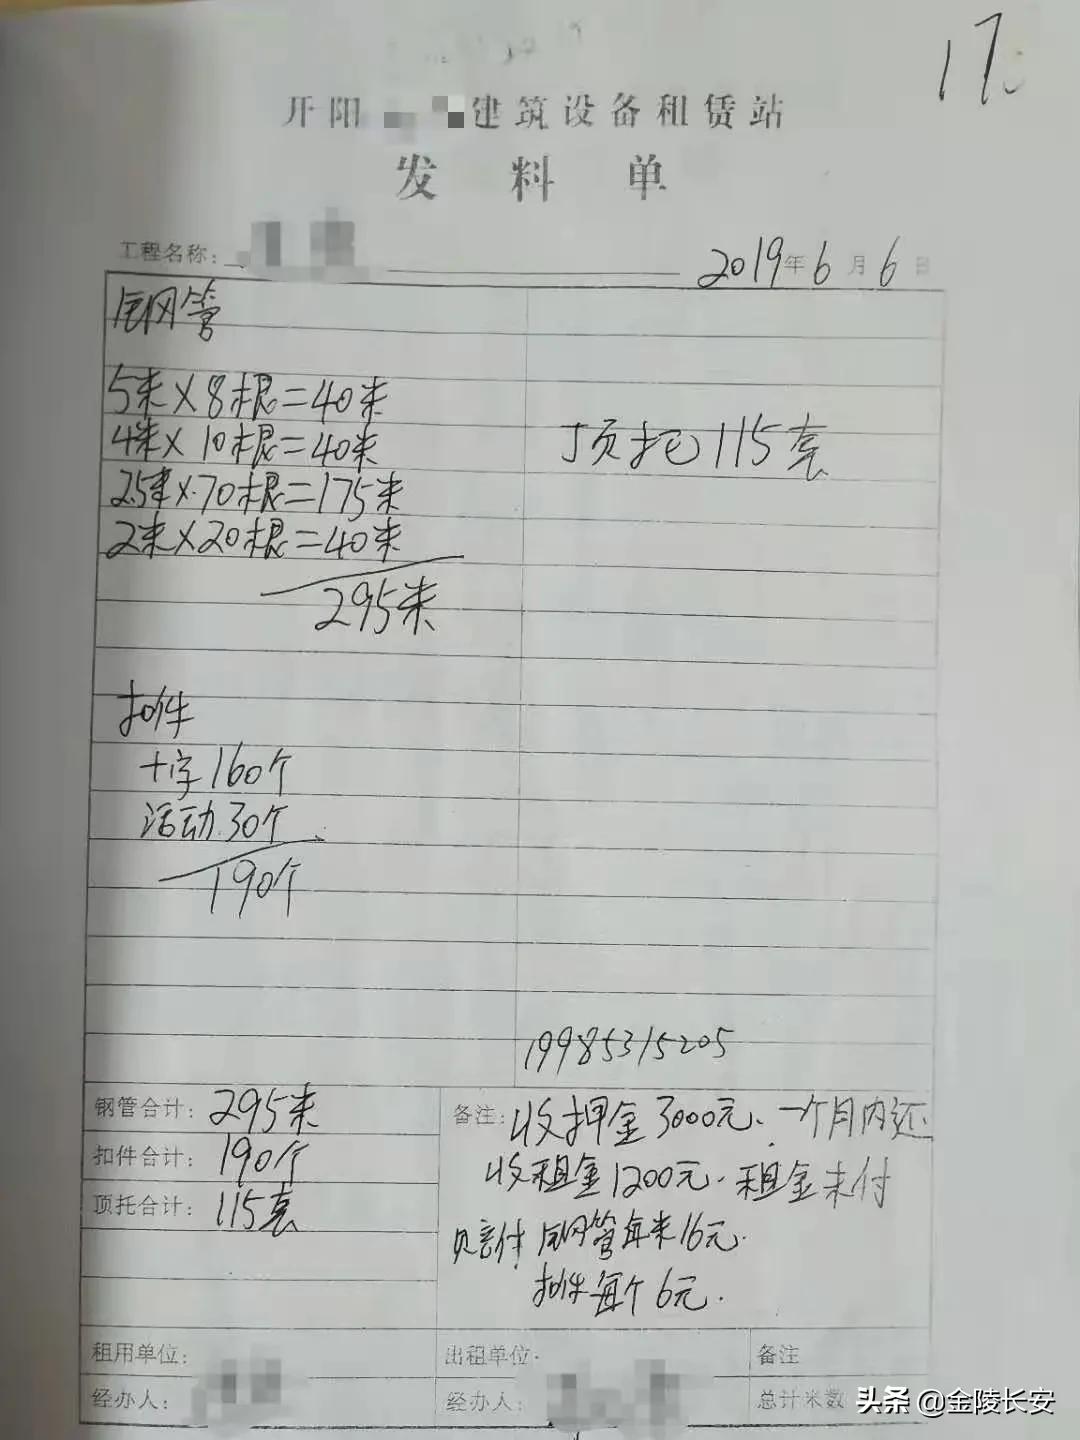 17
开阳 建筑设备租赁站
发料单
工程名称: 2019年6月6日
钢管
5米×8根=40米
4米×10根=40米 顶托115套
2.5米×70根=175米
2米×20根=40米
295米
扣件
十字160个
活动30个
190个
19985315205
钢管合计: 295米 备注: 收押金3000元、一个月内还
扣件合计: 190个 收租金1200元.租金未付
顶托合计: 115套 赔付钢管每米16元.
扣件每个6元.
租用单位: 出租单位: 备注
经办人: 经办人: 总计米数
头条@金陵长安